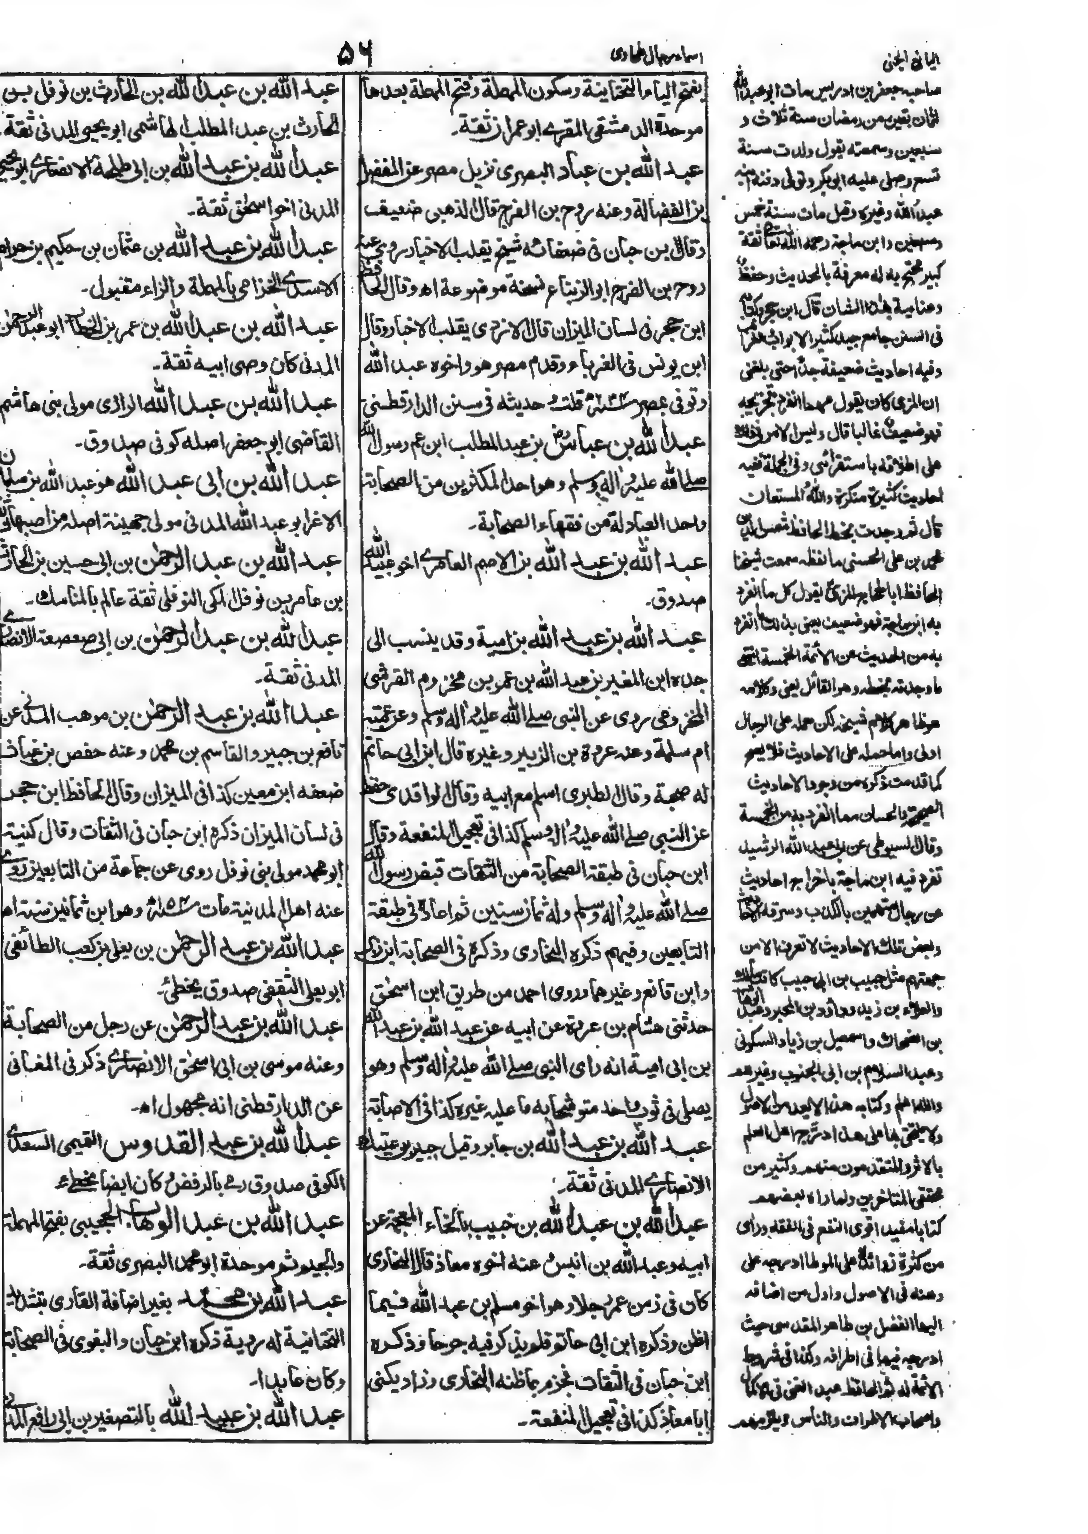 اليانع الجنى
اسماء رجال طحاوى
۵۶
بفتح الياء التحتانية وسكون المهملة وفتح المهملة بعدها
موحدة الدمشقى المقرے ابو عمران ثقة۔
عبد الله بن عباد البصرى نزيل مصر عن المفضل
بن الفضالة وعنه روح بن الفرج قال الذهبى ضعيف
وقال ابن حبان فى ضعفائه شيخ يقلب الاخبار روى عنه
روح بن الفرج ابو الزنباع نسخة موضوعة اه وقال الحافظ
ابن حجر فى لسان الميزان قال الازدى يقلب الاخبار وقال
ابن يونس فى الغرباء وقدم مصر هو واخوه عبد الله
وتوفى بمصر قلت حديثه فى سنن الدارقطنى
عبد الله بن عباس بن عبد المطلب ابن عم رسول الله
صلے الله عليه واله وسلم وهو احد المكثرين من الصحابة
واحد العبادلة من فقهاء الصحابة۔
عبد الله بن عبد الله بن الاصم العامرے اخو عبيد الله
صدوق۔
عبد الله بن عبد الله بن امية وقد ينسب الى
جده ابن المغيرة بن عبد الله بن عمر بن مخزوم القرشى
المخزومى روى عن النبى صلے الله عليه واله وسلم وعن عمته
ام سلمة وعنه عروة بن الزبير وغيره قال ابن ابى حاتم
له صحبة وقال الطبرى اسلم مع ابيه وقال الواقدى حفظ
عن النبى صلے الله عليه واله وسلم كذا فى تعجيل المنفعة وقال
ابن حبان فى طبقة الصحابة من الثقات قبض رسول الله
صلے الله عليه واله وسلم وله ثمان سنين ثم اعاده فى طبقة
التابعين وفيهم ذكره البخارى وذكره فى الصحابة
وابن قانع وغيرهما وروى احمد من طريق ابن اسحٰق
حدثنى هشام بن عروة عن ابيه عن عبد الله بن عبد الله
بن ابى امية انه رأى النبى صلے الله عليه واله وسلم وهو
يصلى فى ثوب واحد متوشحا به ما عليه غيره كذا فى الاصابة
عبد الله بن عبد الله بن جابر وقيل جبر بن عتيك
الانصارے المدنى ثقة۔
عبد الله بن عبد الله بن خبيب بالخاء المعجمة عن
ابيه وعبد الله بن انيس وعنه اخوه معاذ قال البخارى
كان فى زمن عمر رجلا وهو اخو مسلم بن عبد الله فيما
اظن وذكره ابن ابى حاتم فلم يذكر فيه جرحا وذكره
ابن حبان فى الثقات فجزم بما ظنه البخارى وزاد يكنى
ابا معاذ كذا فى تعجيل المنفعة۔
عبد الله بن عبد الله بن الحارث بن نوفل بن
الحارث بن عبد المطلب الهاشمى ابو يحيى المدنى ثقة۔
عبد الله بن عبد الله بن ابى طلحة الانصارے ابو يحيى
المدنى اخو اسحٰق ثقة۔
عبد الله بن عبد الله بن عثمان بن حكيم بن حزام
الاسدے الحزامى بالمهملة والزاء مقبول۔
عبد الله بن عبد الله بن عمر بن الخطاب ابو عبد الرحمن
المدنى كان وصى ابيه ثقة۔
عبد الله بن عبد الله الرازى مولى بنى هاشم
القاضى ابو جعفر اصله كوفى صدوق۔
عبد الله بن ابى عبد الله هو عبد الله بن سلمان
الاغر ابو عبد الله المدنى مولى جهينة اصله من اصبهان ثقة
عبد الله بن عبد الرحمٰن بن ابى حسين بن الحارث
بن عامر بن نوفل المكى النوفلى ثقة عالم بالمناسك۔
عبد الله بن عبد الرحمٰن بن ابى صعصعة الانصارے
المدنى ثقة۔
عبد الله بن عبد الرحمٰن بن موهب المدنى عن
نافع بن جبير والقاسم بن محمد وعنه حفص بن غياث
ضعفه ابن معين كذا فى الميزان وقال الحافظ ابن حجر
فى لسان الميزان ذكره ابن حبان فى الثقات وقال كنيته
ابو محمد مولى بنى نوفل روى عن جماعة من التابعين روى
عنه اهل المدينة مات وهو ابن ثمانين سنة اه
عبد الله بن عبد الرحمٰن بن يعلى بن كعب الطائفى
ابو يعلى الثقفى صدوق يخطئ۔
عبد الله بن عبد الرحمٰن عن رجل من الصحابة
وعنه موسى بن ابى اسحٰق الانصارے ذكر فى المغانى
عن الدارقطنى انه مجهول اه۔
عبد الله بن عبد القدوس التميمى السعدے
الكوفى صدوق رمى بالرفض كان ايضا يخطئ
عبد الله بن عبد الوهاب الحجبى بفتح المهملة
والجيم ثم موحدة ابو محمد البصرى ثقة۔
عبد الله بن عبد بغير اضافة القارى بتشديد
التحتانية له رؤية ذكره ابن حبان والبغوى فى الصحابة
وكان عابدا۔
عبد الله بن عبيد الله بالتصغير بن ابى رافع المدنى
صاحبه جعفر بن ادريس مات ابو عبد الله
لثمان بقين من رمضان سنة ثلاث و
سبعين وسمعته يقول ولدت سنة
تسع وصلى عليه ابو بكر وتولى دفنه
عبد الله وغيره وقيل مات سنة خمس
وسبعين وابن ماجة رحمه الله تعالى ثقة
كبير محتج به له معرفة بالحديث وحفظ
قال ابن حجر وكتابه
فى السنن جامع جيد كثير الابواب والغرائب
وفيه احاديث ضعيفة جدا حتى بلغنى
ان المزى كان يقول مهما انفرد بتخريجه
فهو ضعيف غالبا قال وليس الامر فى ذلك
على اطلاقه باستقرائى وفى الجملة ففيه
احاديث كثيرة منكرة والله المستعان
قال ثم وجدت بخط الحافظ شمس الدين
محمد بن على الحسينى ما لفظه سمعت شيخنا
الحافظ ابا الحجاج المزى يقول كل ما انفرد
به ابن ماجة فهو ضعيف يعنى بذلك ما انفرد
به من الحديث عن الائمة الخمسة انتهى
ما وجدته بخطه وهو القائل يعنى وكلامه
هو ظاهر كلام شيخه لكن حمله على الرجال
اولى واما حمله على الاحاديث فلا يصح
كما قدمت ذكره من وجود الاحاديث
الصحيحة والحسان مما انفرد به من الخمسة
تفرد فيه ابن ماجة باخراج احاديث
عن رجال متهمين بالكذب وسرقة الاحاديث
وبعض تلك الاحاديث لا تعرف الا من
جهتهم مثل حبيب بن ابى حبيب كاتب مالك
والعلاء بن زيد وداود بن المحبر وعبد الوهاب
بن الضحاك واسمعيل بن زياد السكونى
وعبد السلام بن ابى الجنوب وغيرهم
والله اعلم وكتابه هذا
بالاثر والمتقدمون منهم وكثير من
محققى المتأخرين ولما رأه بعضهم
كتابا مفيدا قوى النفع فى الفقه ورأى
من كثرة زوائده على الموطا ادرجه على
وعنه فى الاصول واول من اضافه
اليها الفضل بن طاهر المقدسى حيث
ادرجه فيها فى اطرافه وكذا فى شروط
الائمة له ثم الحافظ عبد الغنى فى الكمال
واصحاب الاطراف والناس وغيرهم